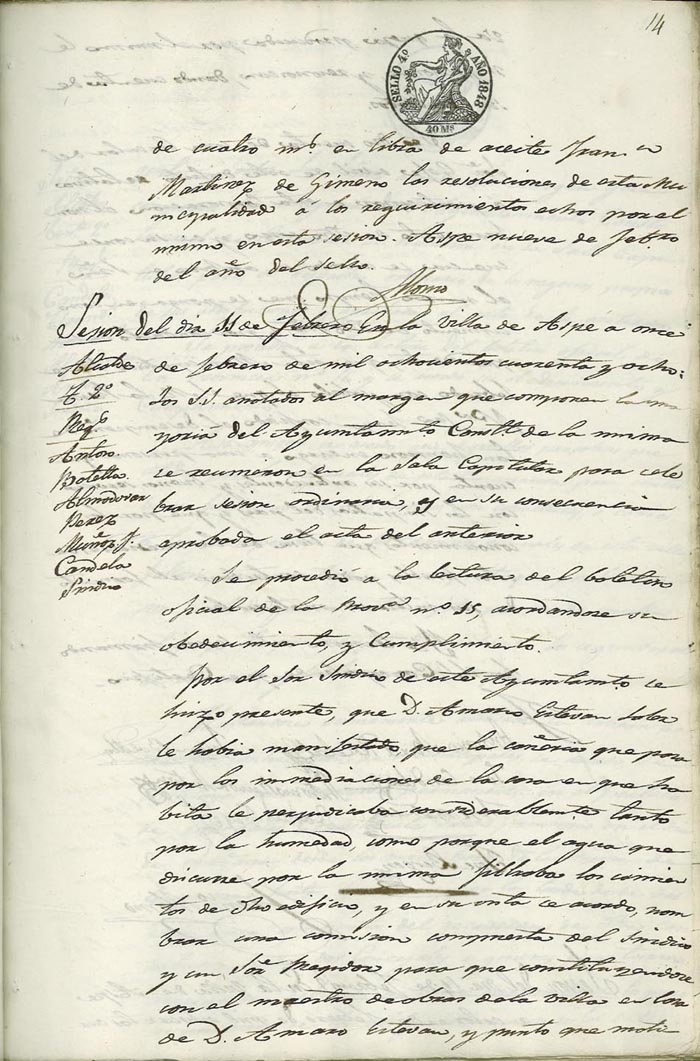 14
SELLO 4º AÑO 1848
40 Ms
de cuatro ms. en libra de aceite Franco
Martinez de Gimeno las resoluciones de esta Mu
nicipalidad á los requirimientos echos por el
mismo en esta sesion. Aspe nueve de Febro
del año del sello.
Alonso
Sesion del dia 11 de Febrero En la villa de Aspe á once
de febrero de mil ochocientos cuarenta y ocho:
los S.S. anotados al margen que componen la ma
yoria del Ayuntamto Constl de la misma
se reunieron en la Sala Capitular para cele
brar sesion ordinaria, y en su consecuencia
aprobada el acta del anterior
Alcalde
T. 2º
Regs
Anton
Botella
Almodovar
Perez
Muñoz J.
Candela
Sindico
Se procedió a la lectura del boletin
oficial de la Prova nº 15, acordandose su
obedecimiento, y Cumplimiento.
Por el Sor Sindico de este Ayuntamto se
hizo presente, que D. Amaro Estevan
le habia manifestado, que la cañeria que pasa
por las inmediaciones de la casa en que ha
bita le perjudicaba considerablemte tanto
por la humedad, como porque el agua que
discurre por la misma filtraba los cimien
tos de dho edificio, y en su vista se acordo, nom
brar una comision compuesta del sindico
y un Sor Regidor para que constituyendose
con el maestro de obras de la villa en casa
de D. Amaro Estevan, y punto que moti